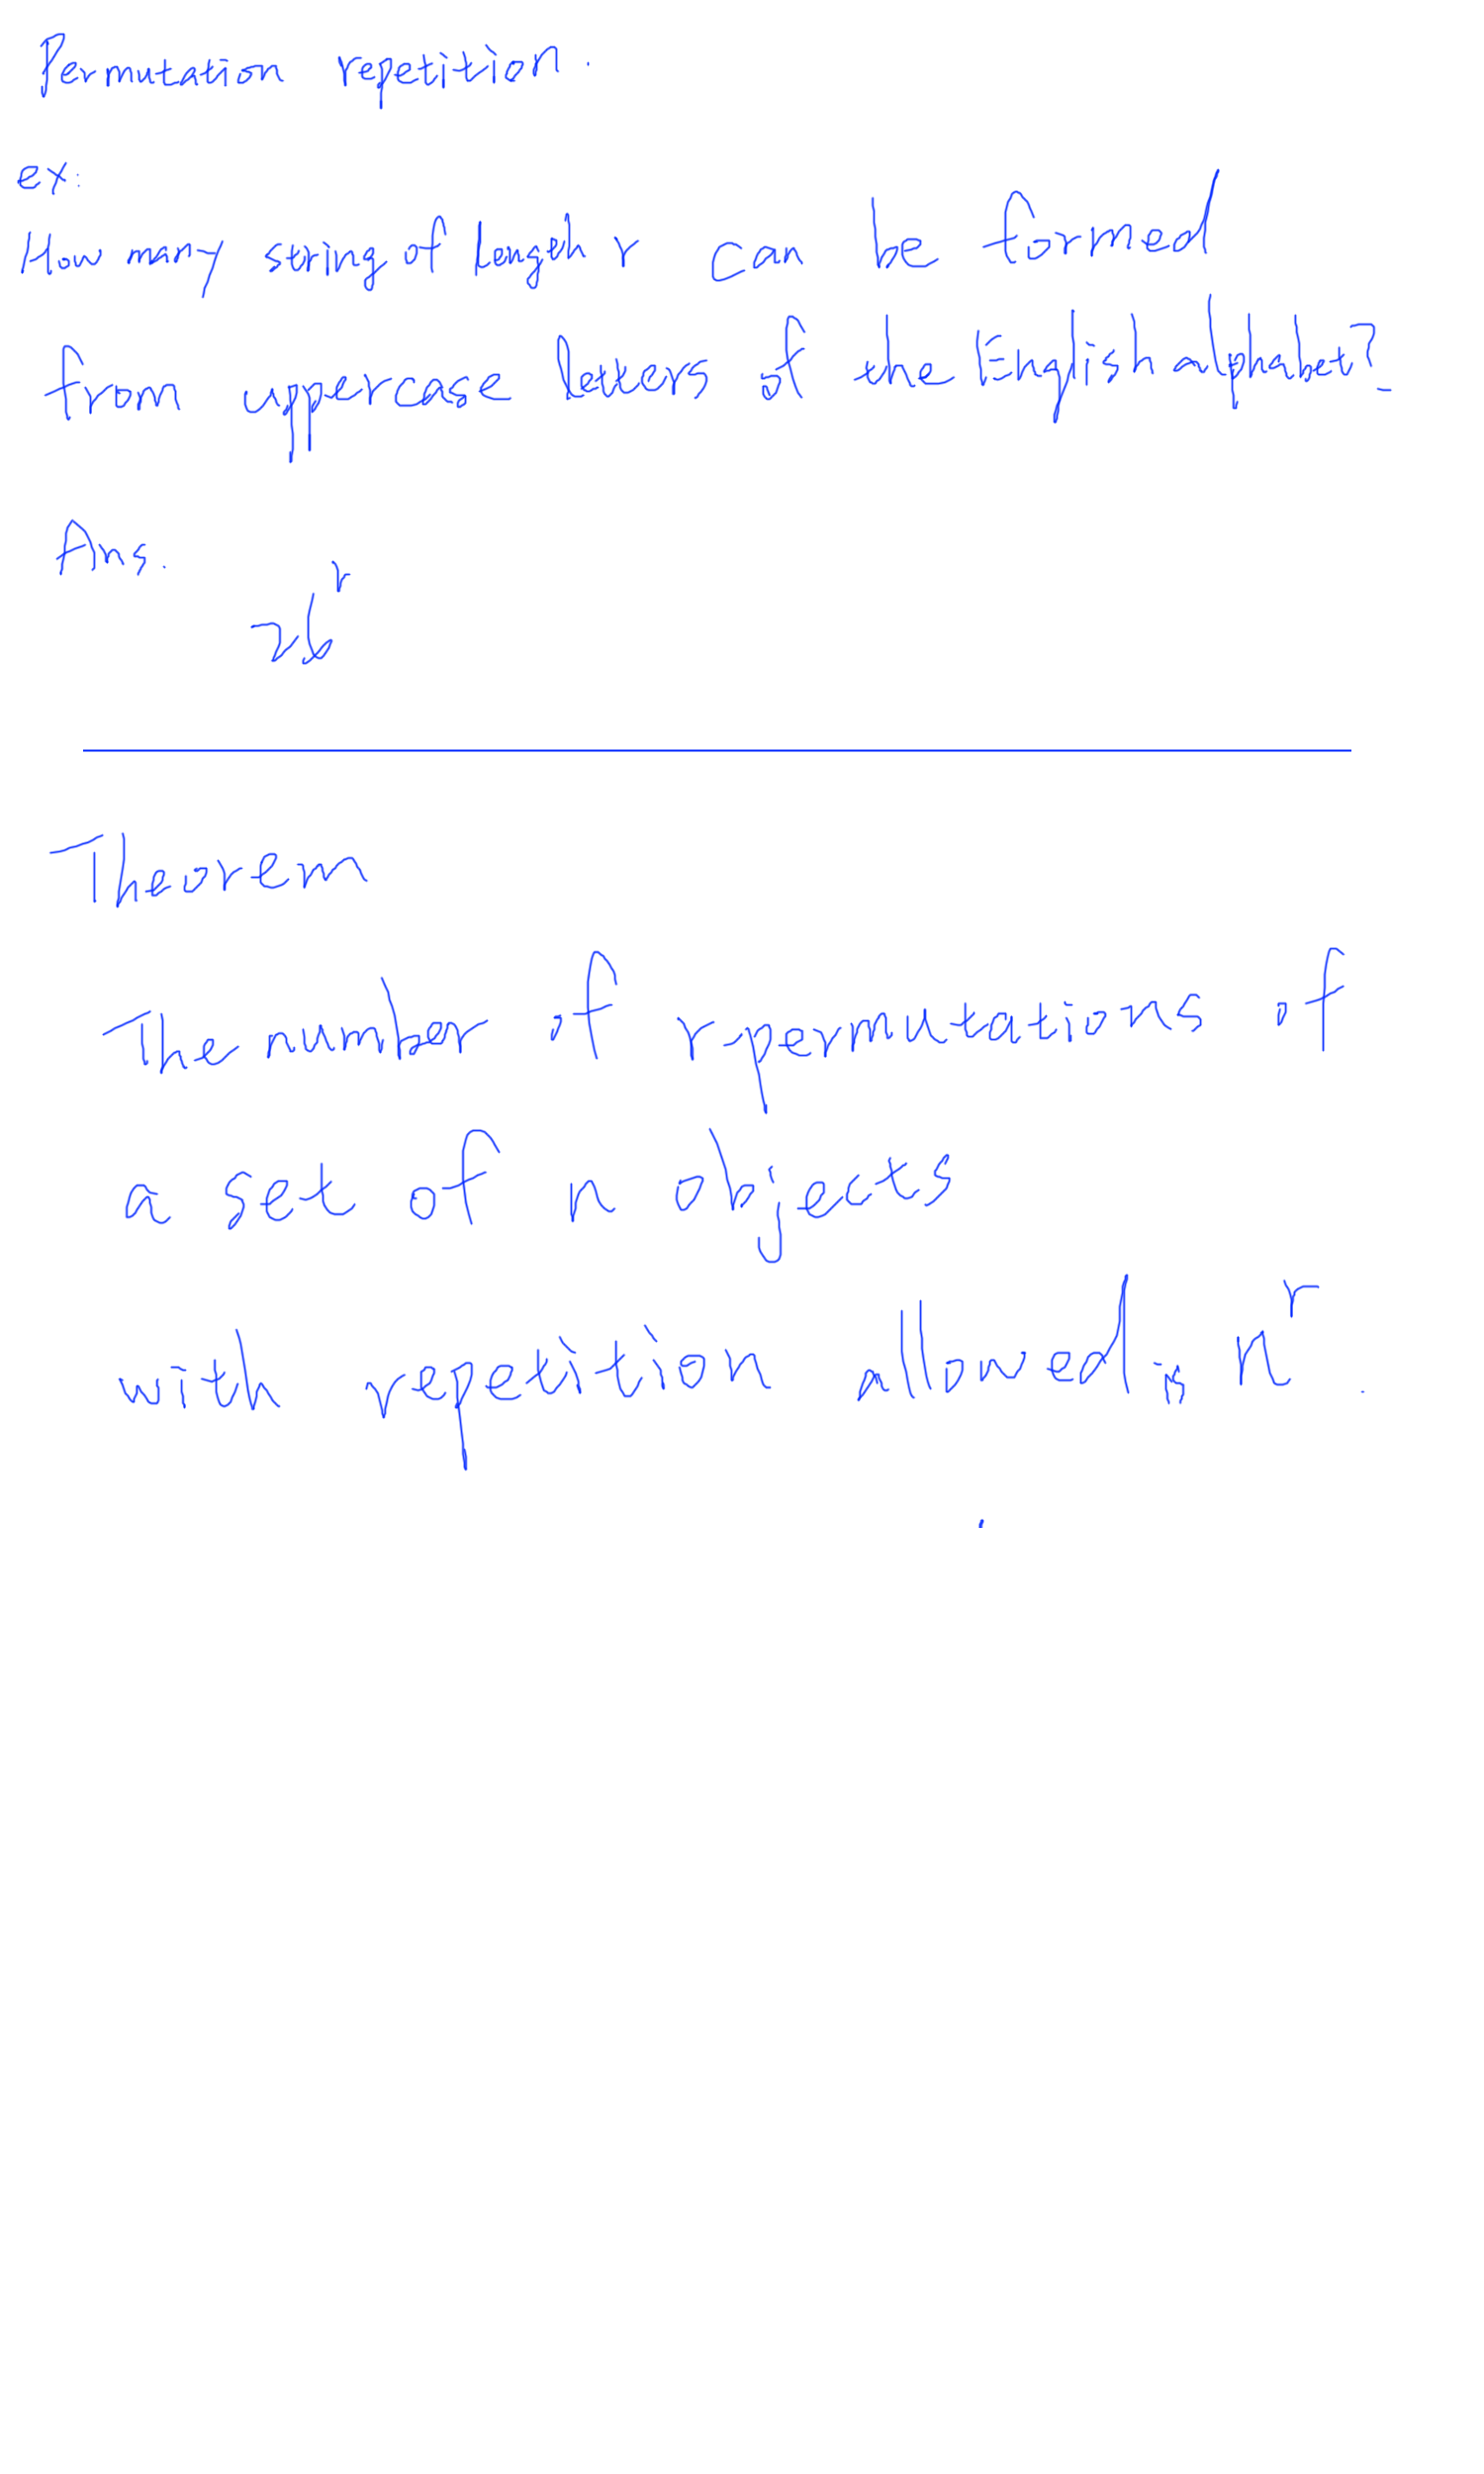 Permutation repetition.
ex:
How many string of length r can be formed
from uppercase letters of the English alphabet?
Ans.
26^r
Theorem
The number of r-permutations of
a set of n objects
with repetition allowed is n^r.